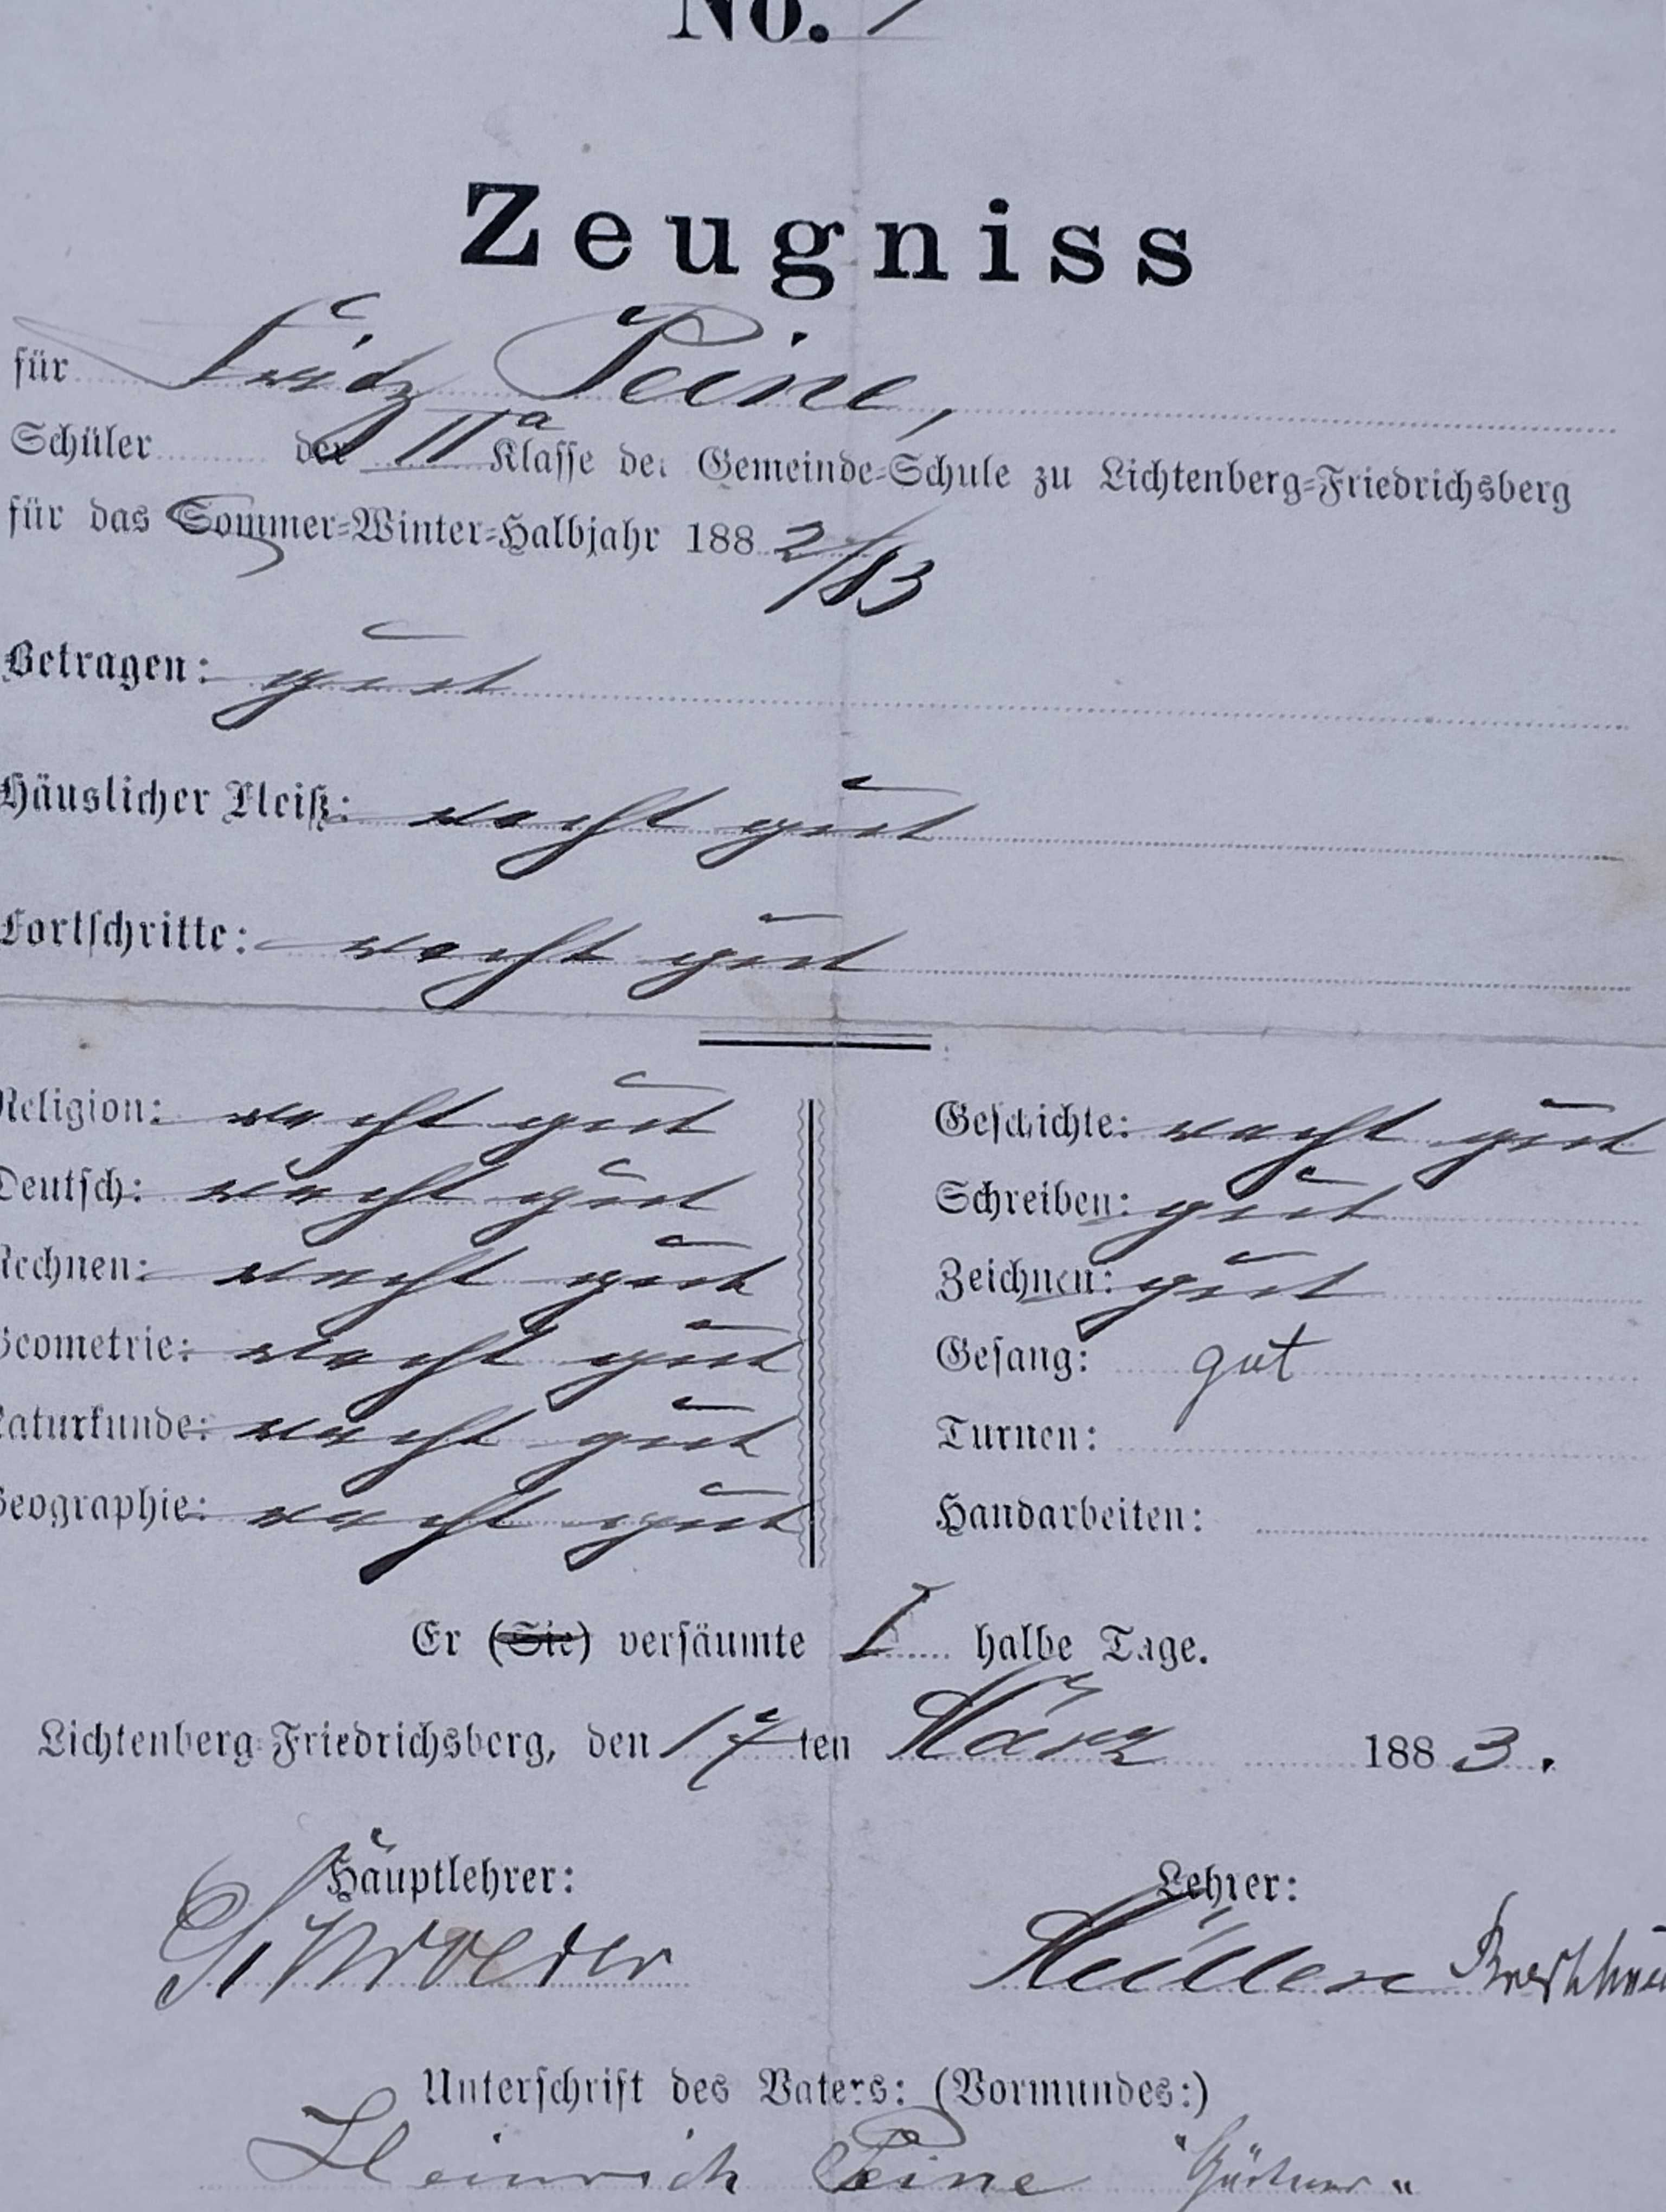 No.
Zeugniss
für Fritz Peine,
Schüler der IIa Klasse der Gemeinde-Schule zu Lichtenberg-Friedrichsberg
für das Sommer-Winter-Halbjahr 1882/83
Betragen: gut
Häuslicher Fleiß: recht gut
Fortschritte: recht gut
Religion: recht gut
Deutsch: recht gut
Rechnen: recht gut
Geometrie: recht gut
Naturkunde: recht gut
Geographie: recht gut
Geschichte: recht gut
Schreiben: gut
Zeichnen: gut
Gesang: gut
Turnen:
Handarbeiten:
Er (Sie) versäumte halbe Tage.
Lichtenberg-Friedrichsberg, den 17ten März 1883.
Hauptlehrer:
Schroeder
Lehrer:
Müller
Unterschrift des Vaters: (Vormundes:)
Heinrich Peine Gärtner "